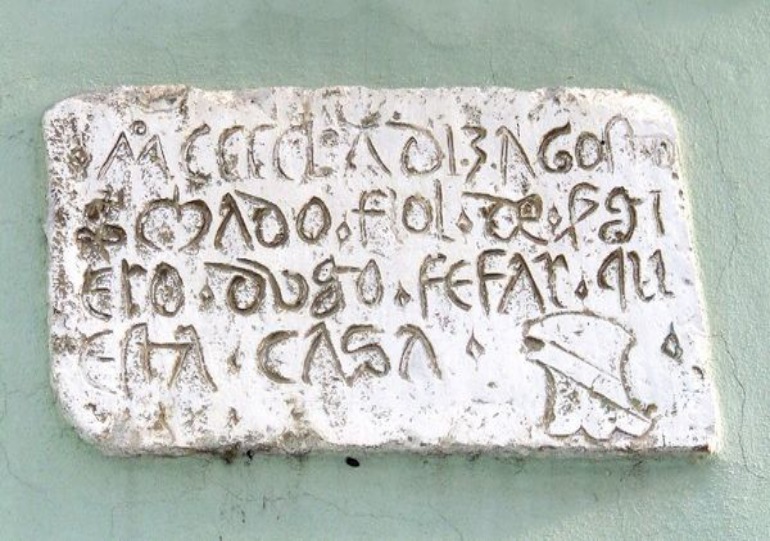 MCCCCL A DI 13 AGOS
MADO · FIOL · DE · GI
ERO · DUGO · FE FAR · QU
ESTA · CASA ·